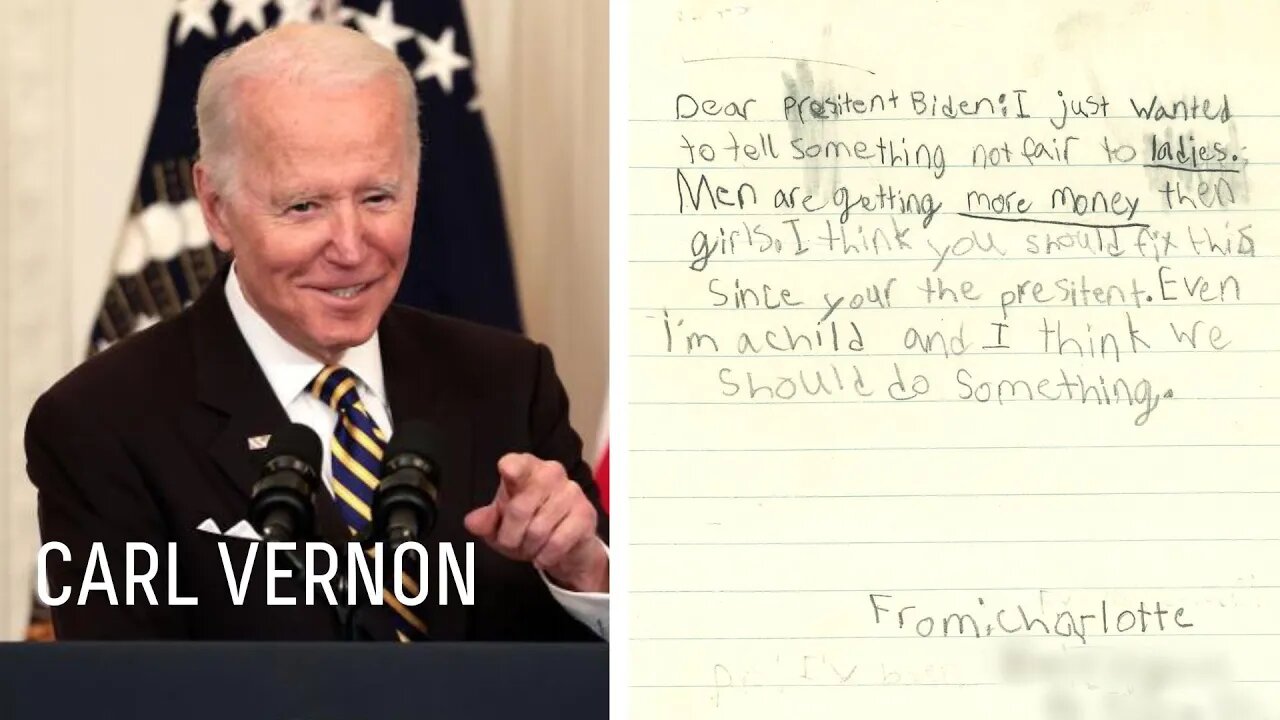 CARL VERNON
Dear Presitent Biden: I just wanted
to tell something not fair to ladies.
Men are getting more money then
girls. I think you should fix this
since your the presitent. Even
I'm a child and I think we
should do something.
From: Charlotte